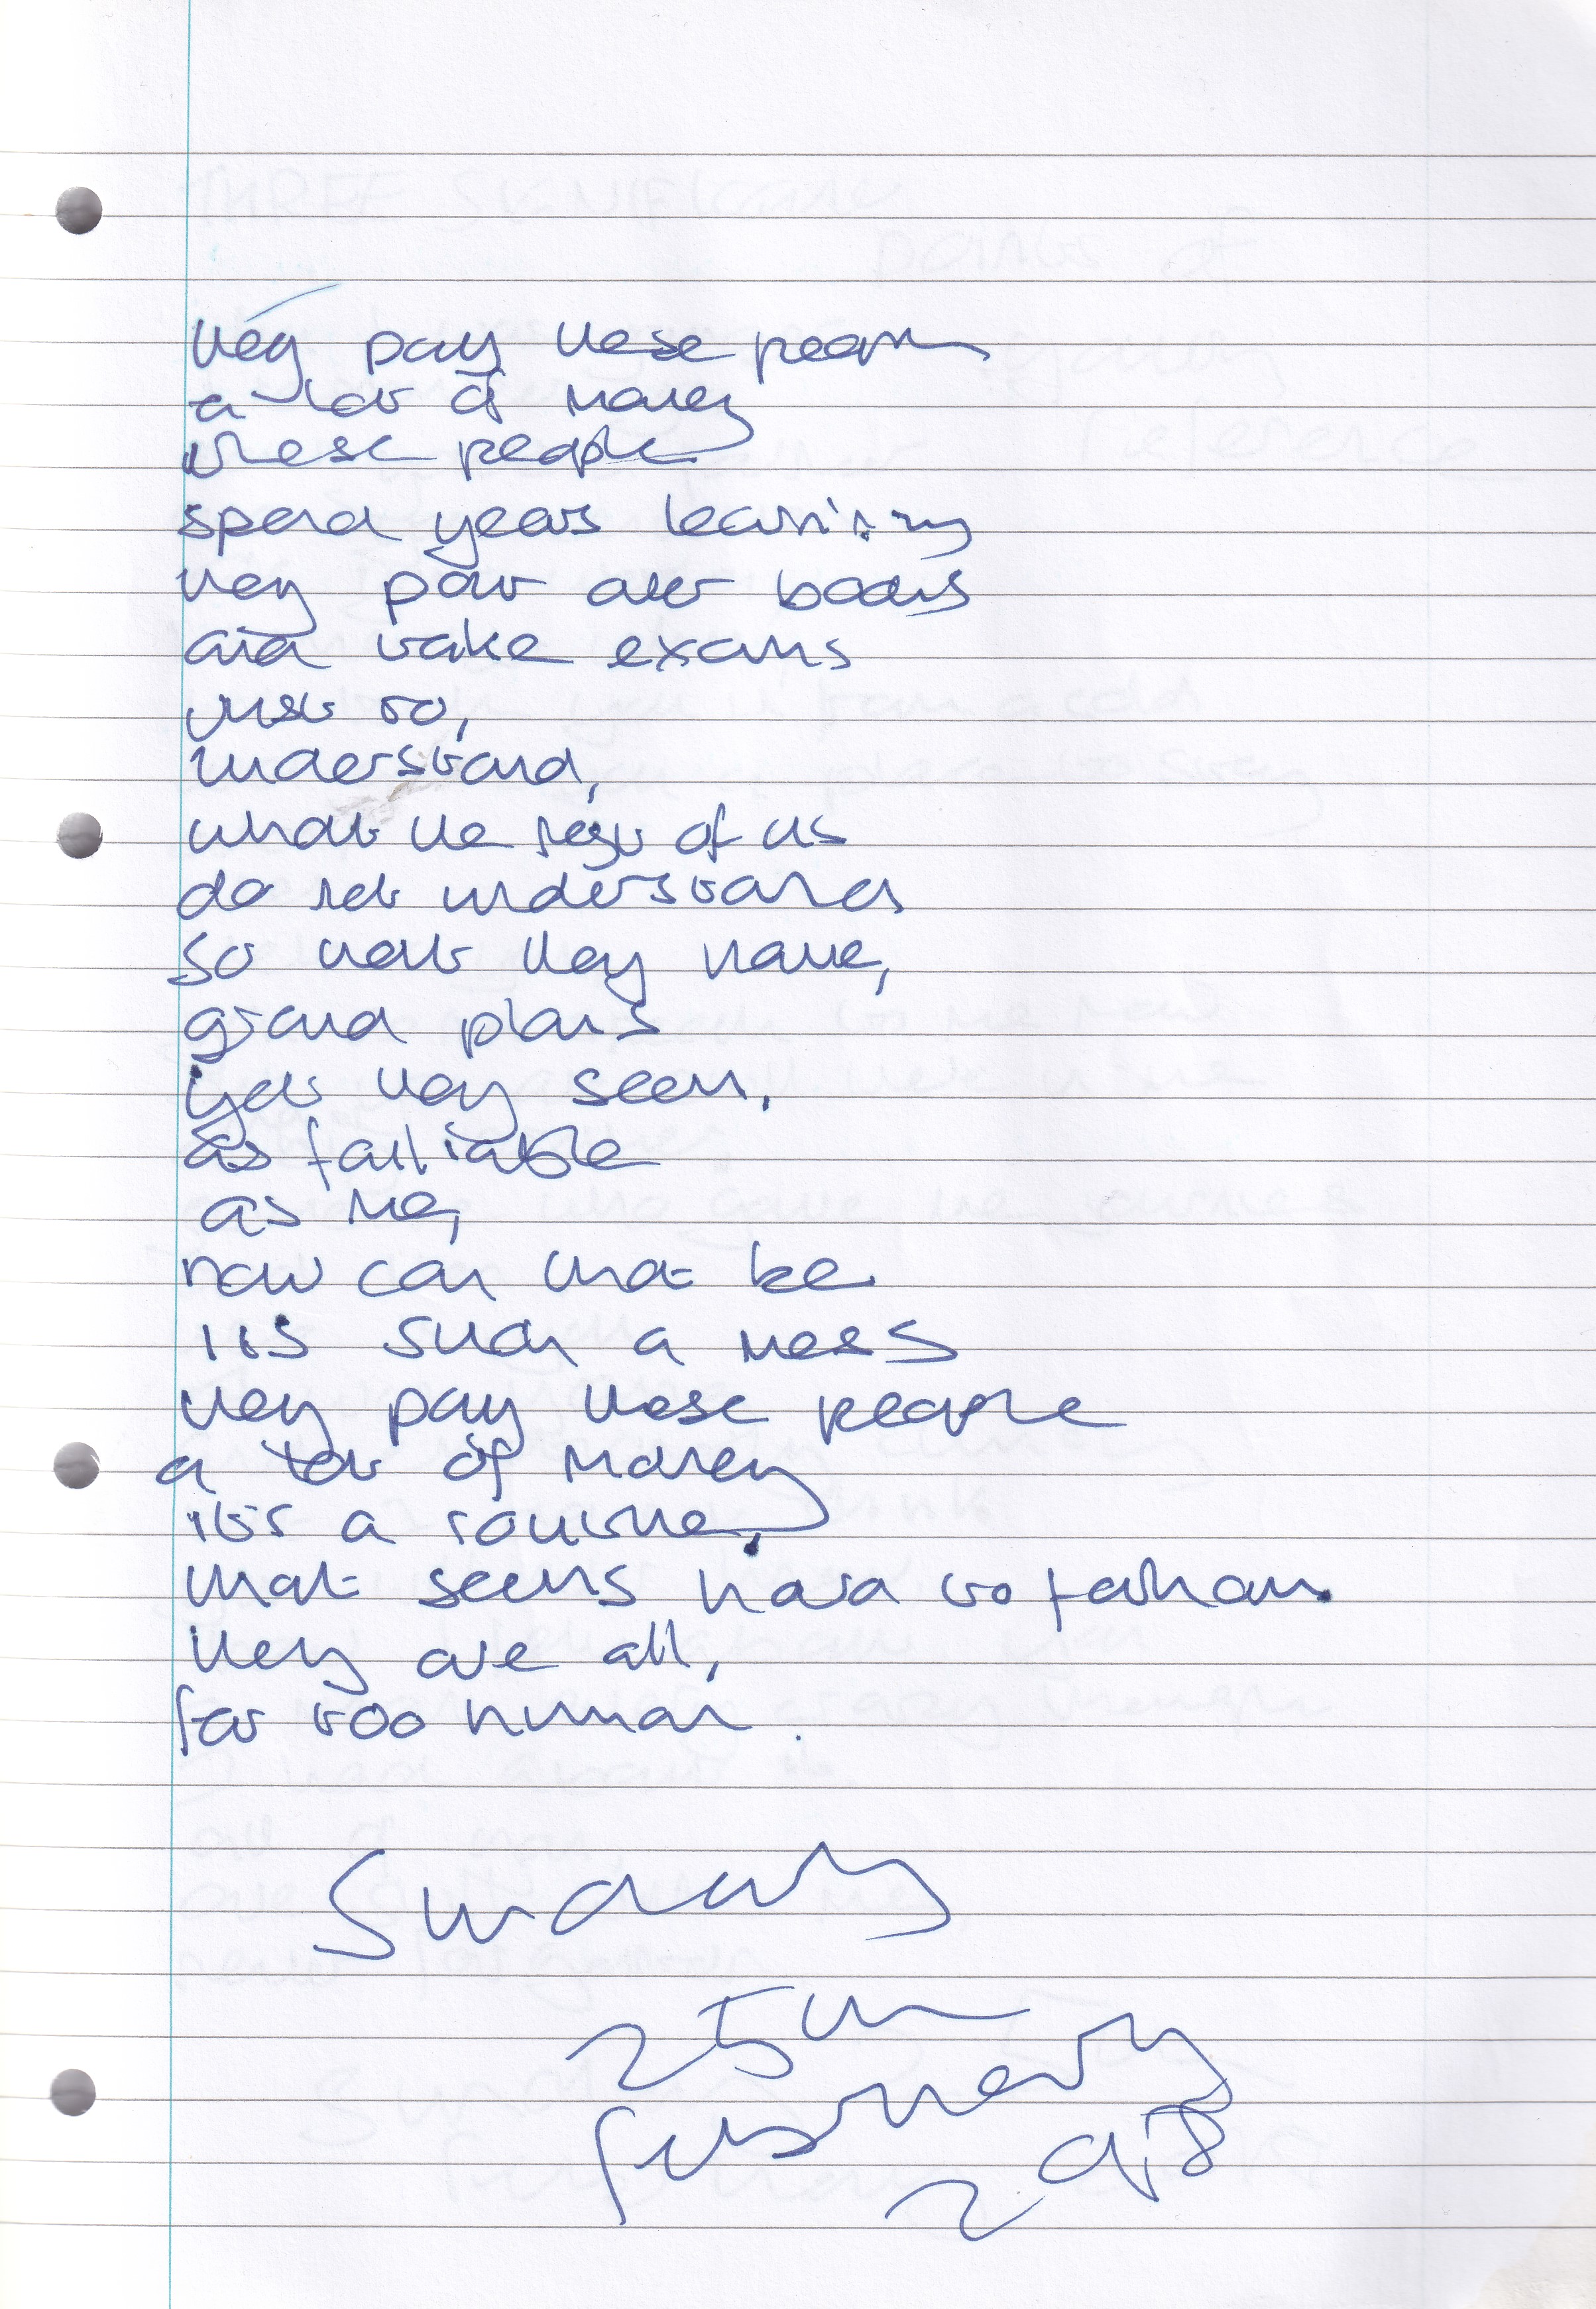 they pay these people
a lot of money
these people
spend years learning
they pour over books
and take exams
just to,
understand,
what the rest of us
do not understand
so that they have,
grand plans
yet they seem,
as failiable
as me,
how can that be
its such a mess
they pay these people
a lot of money
it's a routine,
that seems hard to fathom.
they are all,
far too human.
Sunday
25th
February
2018